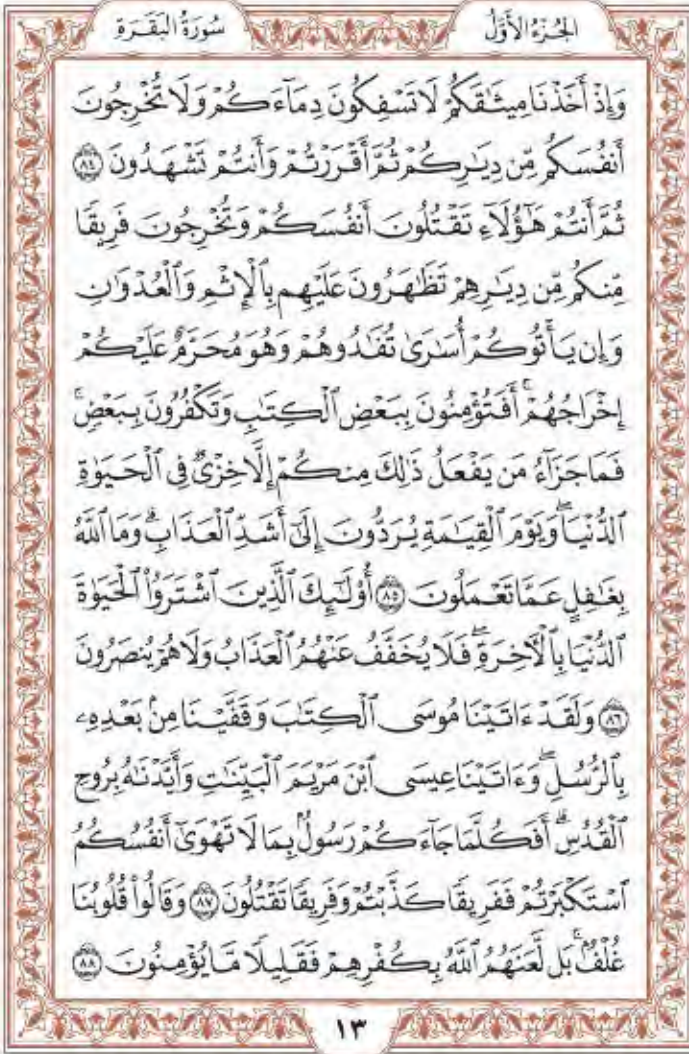 الجُزْءُ الأَوَّلُ
سُورَةُ البَقَرَةِ
وَإِذْ أَخَذْنَا مِيثَٰقَكُمْ لَا تَسْفِكُونَ دِمَآءَكُمْ وَلَا تُخْرِجُونَ
أَنفُسَكُم مِّن دِيَٰرِكُمْ ثُمَّ أَقْرَرْتُمْ وَأَنتُمْ تَشْهَدُونَ ﴿٨٤﴾
ثُمَّ أَنتُمْ هَٰٓؤُلَآءِ تَقْتُلُونَ أَنفُسَكُمْ وَتُخْرِجُونَ فَرِيقًا
مِّنكُم مِّن دِيَٰرِهِمْ تَظَٰهَرُونَ عَلَيْهِم بِٱلْإِثْمِ وَٱلْعُدْوَٰنِ
وَإِن يَأْتُوكُمْ أُسَٰرَىٰ تُفَٰدُوهُمْ وَهُوَ مُحَرَّمٌ عَلَيْكُمْ
إِخْرَاجُهُمْ ۚ أَفَتُؤْمِنُونَ بِبَعْضِ ٱلْكِتَٰبِ وَتَكْفُرُونَ بِبَعْضٍ ۚ
فَمَا جَزَآءُ مَن يَفْعَلُ ذَٰلِكَ مِنكُمْ إِلَّا خِزْىٌ فِى ٱلْحَيَوٰةِ
ٱلدُّنْيَا ۖ وَيَوْمَ ٱلْقِيَٰمَةِ يُرَدُّونَ إِلَىٰٓ أَشَدِّ ٱلْعَذَابِ ۗ وَمَا ٱللَّهُ
بِغَٰفِلٍ عَمَّا تَعْمَلُونَ ﴿٨٥﴾ أُو۟لَٰٓئِكَ ٱلَّذِينَ ٱشْتَرَوُا۟ ٱلْحَيَوٰةَ
ٱلدُّنْيَا بِٱلْءَاخِرَةِ ۖ فَلَا يُخَفَّفُ عَنْهُمُ ٱلْعَذَابُ وَلَا هُمْ يُنصَرُونَ
﴿٨٦﴾ وَلَقَدْ ءَاتَيْنَا مُوسَى ٱلْكِتَٰبَ وَقَفَّيْنَا مِنۢ بَعْدِهِۦ
بِٱلرُّسُلِ ۖ وَءَاتَيْنَا عِيسَى ٱبْنَ مَرْيَمَ ٱلْبَيِّنَٰتِ وَأَيَّدْنَٰهُ بِرُوحِ
ٱلْقُدُسِ ۗ أَفَكُلَّمَا جَآءَكُمْ رَسُولٌۢ بِمَا لَا تَهْوَىٰٓ أَنفُسُكُمُ
ٱسْتَكْبَرْتُمْ فَفَرِيقًا كَذَّبْتُمْ وَفَرِيقًا تَقْتُلُونَ ﴿٨٧﴾ وَقَالُوا۟ قُلُوبُنَا
غُلْفٌۢ ۚ بَل لَّعَنَهُمُ ٱللَّهُ بِكُفْرِهِمْ فَقَلِيلًا مَّا يُؤْمِنُونَ ﴿٨٨﴾
١٣